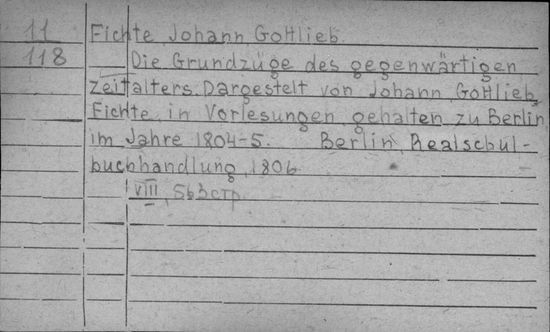 11 Fichte Johann Gottlieb
118 Die Grundzüge des gegenwärtigen
Zeitalters. Dargestelt von Johann Gottlieb
Fichte, in Vorlesungen, gehalten zu Berlin
im Jahre 1804-5. Berlin, Realschul-
buchhandlung, 1806
VIII, 563 стр.